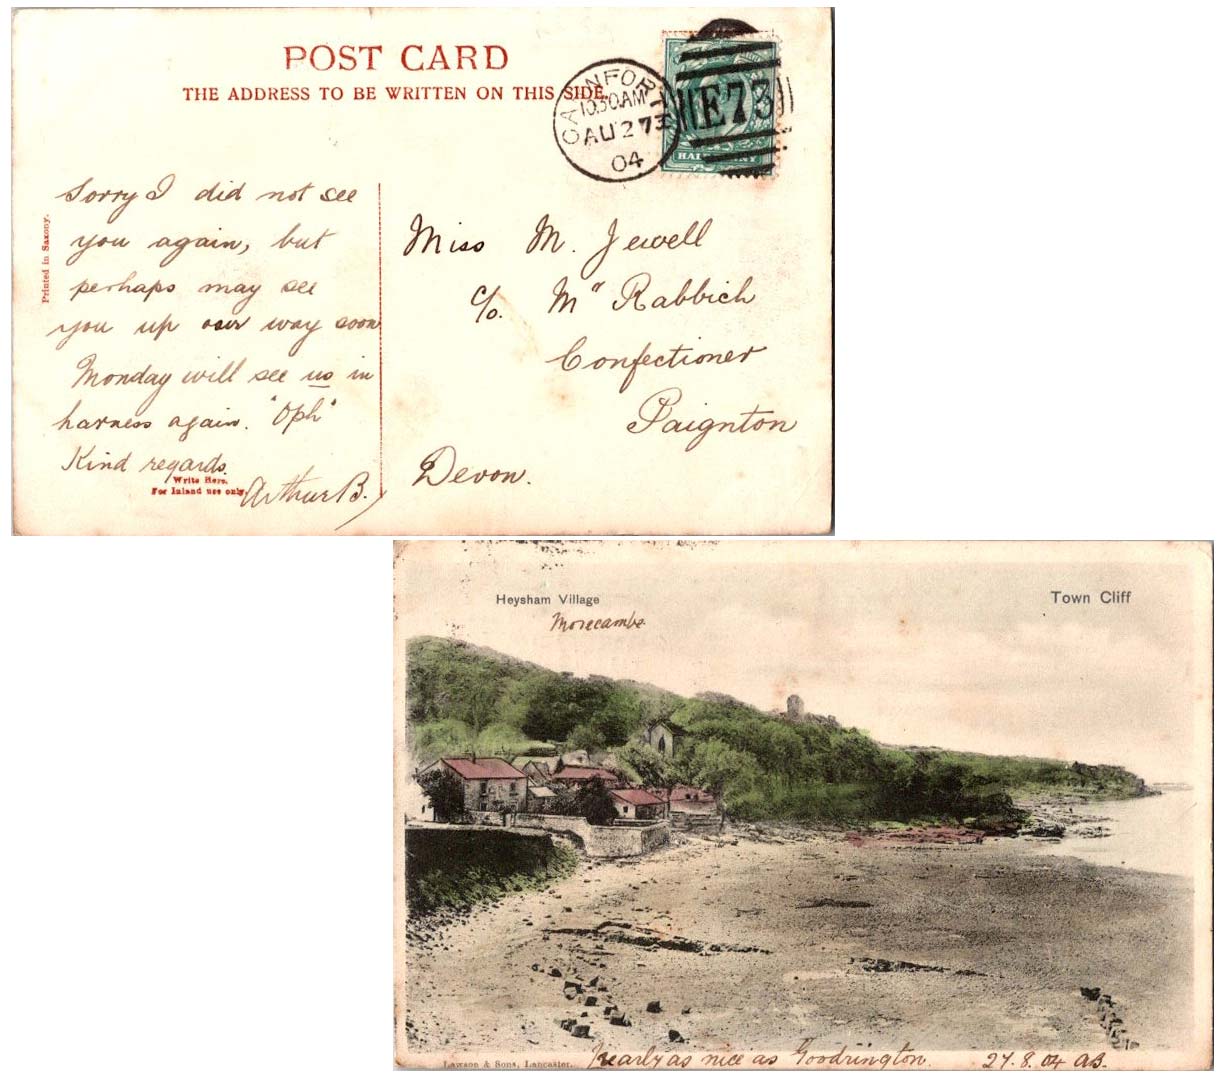 POST CARD
THE ADDRESS TO BE WRITTEN ON THIS SIDE.
CARNFORTH
10.30AM
AU 27
04
E73
HALFPENNY
Printed in Saxony.
Sorry I did not see
you again, but
perhaps may see
you up our way soon
Monday will see us in
harness again. "Oph"
Kind regards.
Write Here.
For Inland use only.
Arthur B.
Miss M. Jewell
c/o. Mr Rabbich
Confectioner
Paignton
Devon.
Heysham Village
Town Cliff
Morecambe
Lawson & Sons, Lancaster.
Nearly as nice as Goodrington. 27.8.04 AB.